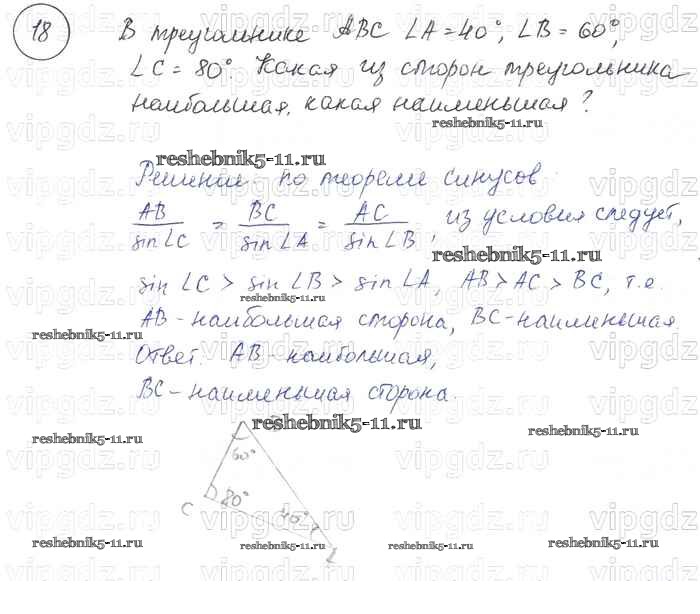 18 В треугольнике ABC ∠A = 40°, ∠B = 60°,
∠C = 80°. Какая из сторон треугольника
наибольшая, какая наименьшая?
reshebnik5-11.ru
reshebnik5-11.ru
Решение: по теореме синусов
AB/sin∠C = BC/sin∠A = AC/sin∠B, из условия следует,
reshebnik5-11.ru
sin∠C > sin∠B > sin∠A, AB > AC > BC, т.е.
reshebnik5-11.ru
AB - наибольшая сторона, BC - наименьшая
reshebnik5-11.ru
reshebnik5-11.ru
Ответ: AB - наибольшая,
BC - наименьшая сторона.
reshebnik5-11.ru
reshebnik5-11.ru
reshebnik5-11.ru
60°
C 80° 40°
reshebnik5-11.ru
reshebnik5-11.ru
reshebnik5-11.ru
reshebnik5-11.ru
vipgdz.ru